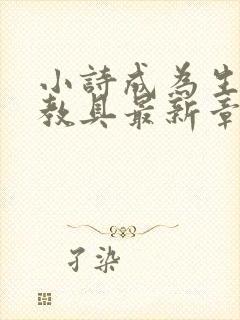 小詩成為生
教具最新章
孑染